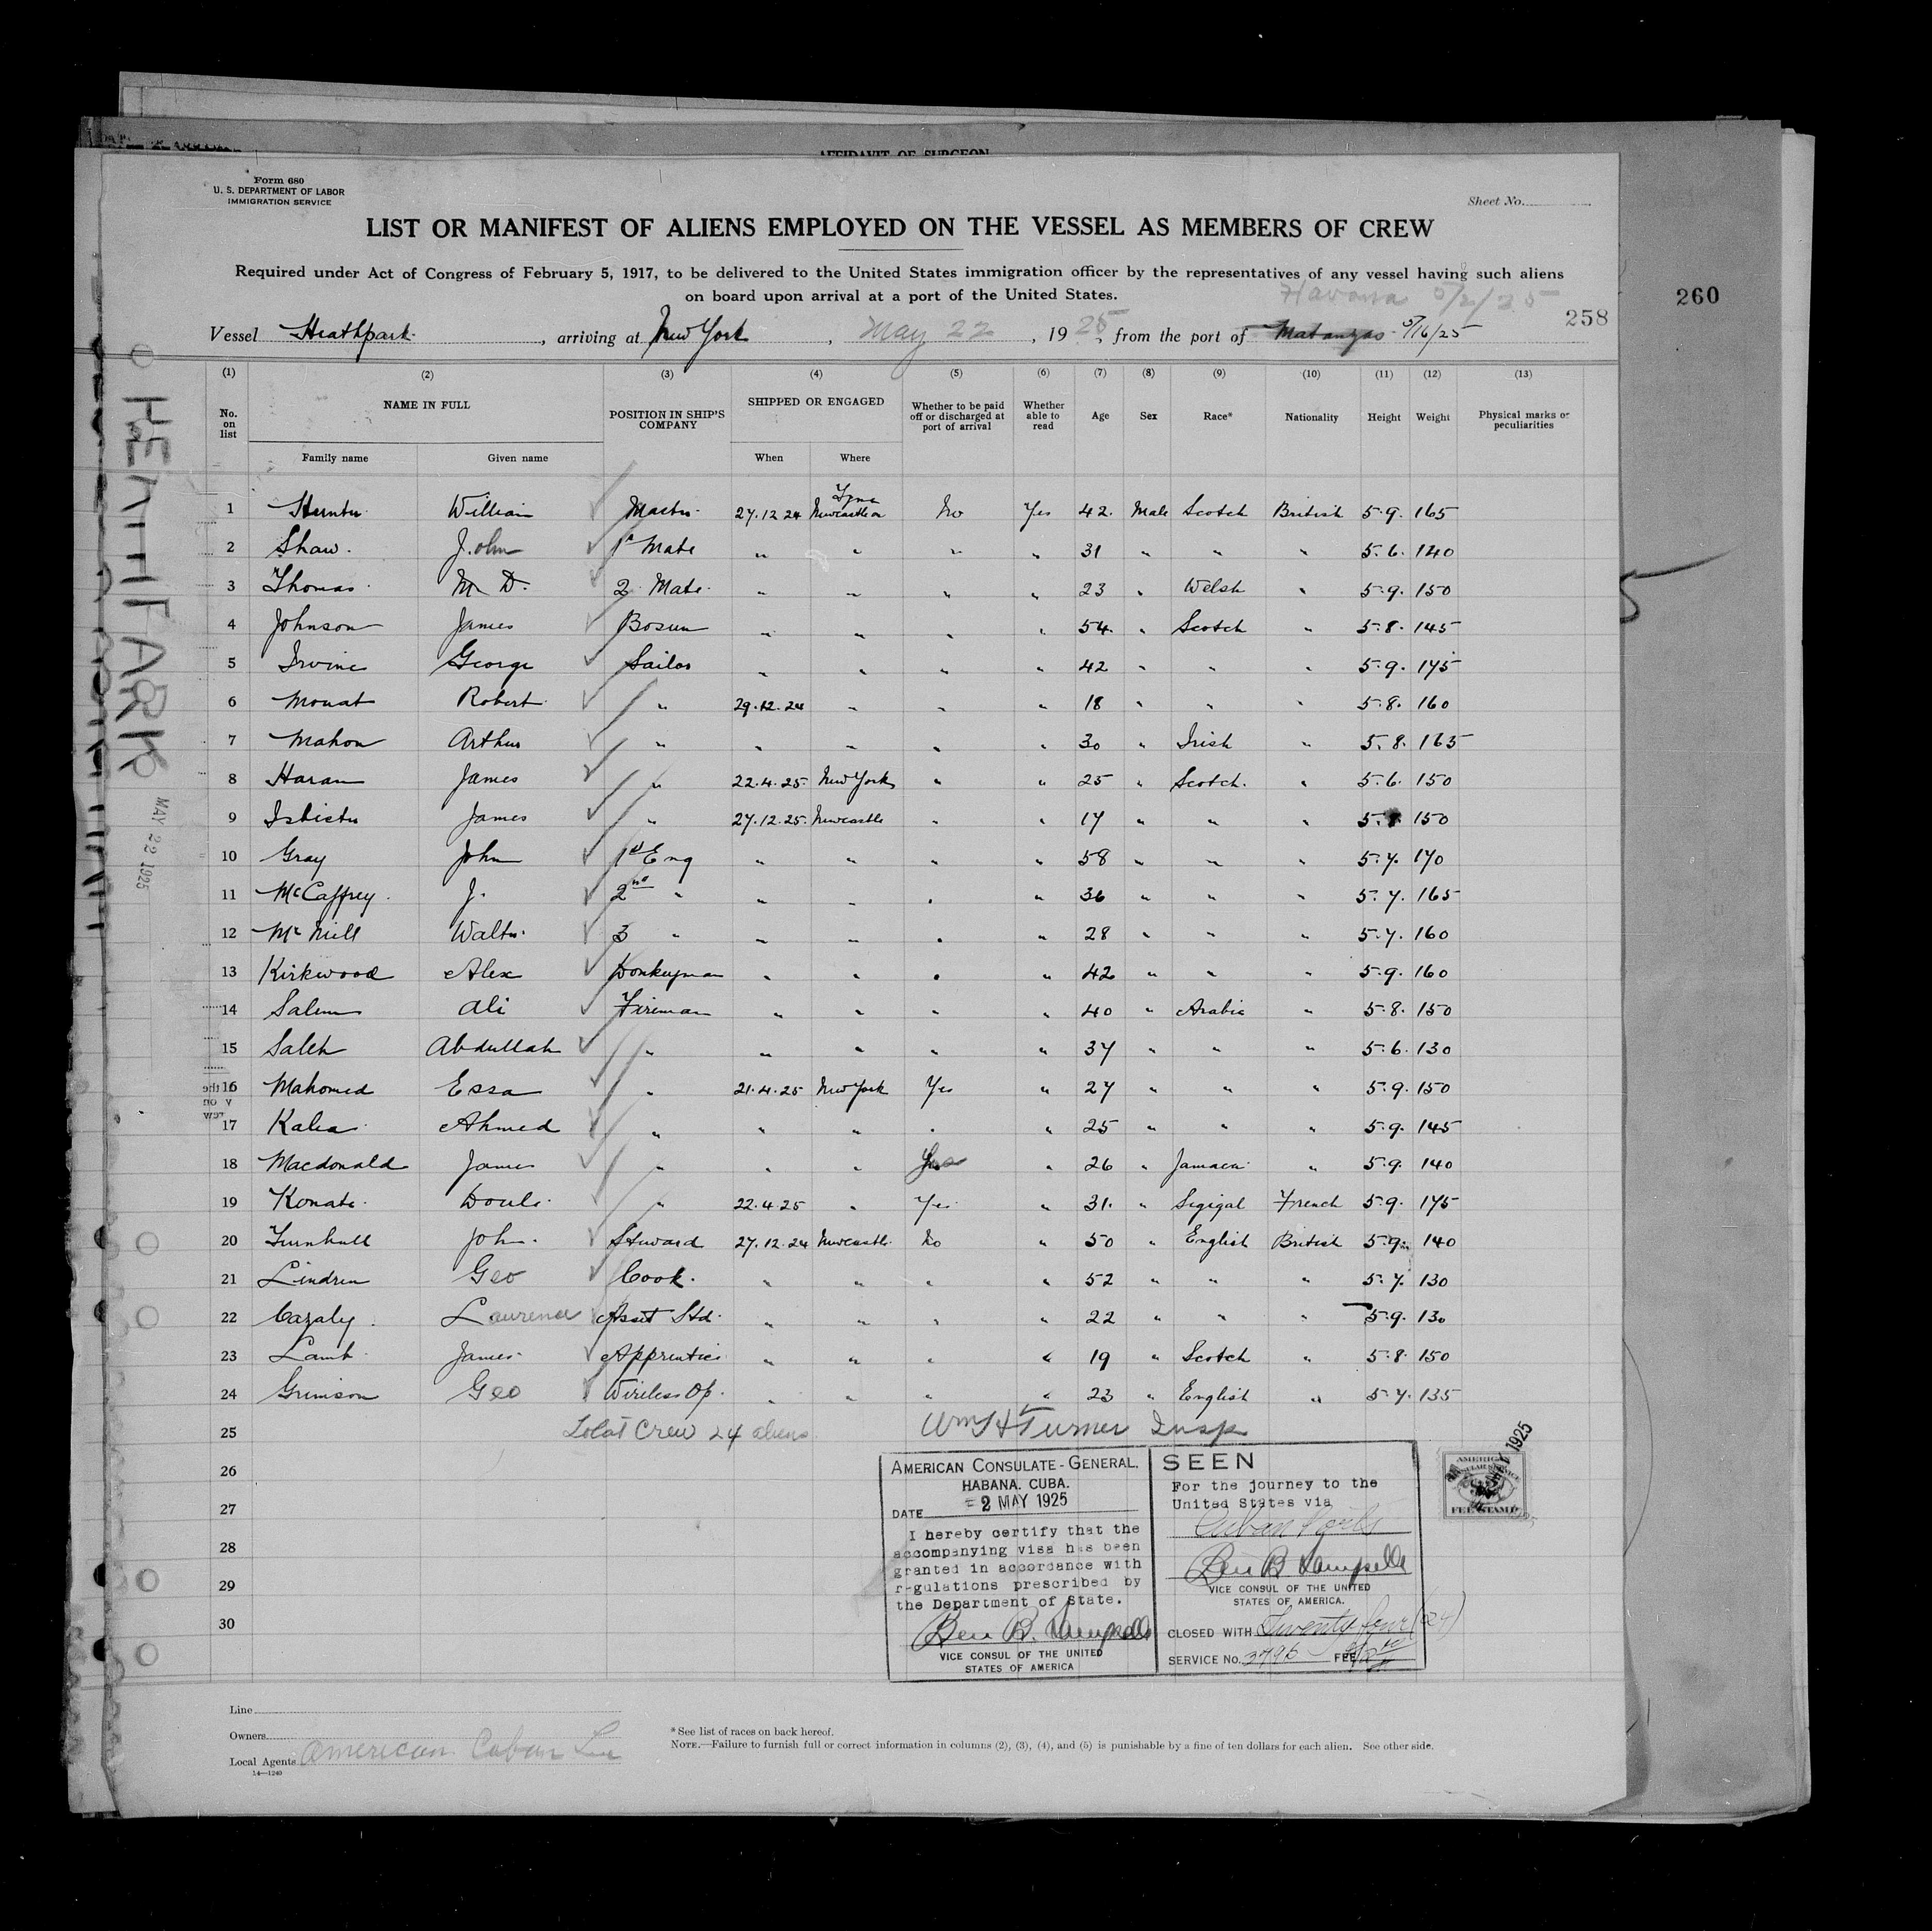 AFFIDAVIT OF SURGEON
Form 680
U. S. DEPARTMENT OF LABOR
IMMIGRATION SERVICE
Sheet No.
LIST OR MANIFEST OF ALIENS EMPLOYED ON THE VESSEL AS MEMBERS OF CREW
Required under Act of Congress of February 5, 1917, to be delivered to the United States immigration officer by the representatives of any vessel having such aliens
on board upon arrival at a port of the United States.
Havana 5/2/25
260
258
Vessel Heathpark, arriving at New York, May 22, 1925, from the port of Matanzas 5/16/25
(1) (2) (3) (4) (5) (6) (7) (8) (9) (10) (11) (12) (13)
No. on list NAME IN FULL POSITION IN SHIP'S COMPANY SHIPPED OR ENGAGED Whether to be paid off or discharged at port of arrival Whether able to read Age Sex Race* Nationality Height Weight Physical marks or peculiarities
Family name Given name When Where
1 Hunter William Master 27.12.24 Newcastle on Tyne No Yes 42 Male Scotch British 5.9. 165
2 Shaw John 1st Mate " " " " 31 " " " 5.6. 140
3 Thomas M D. 2 Mate " " " " 23 " Welsh " 5.9. 150
4 Johnson James Bosun " " " " 54 " Scotch " 5.8. 145
5 Irvine George Sailor " " " " 42 " " " 5.9. 175
6 Mouat Robert " 29.12.24 " " " 18 " " " 5.8. 160
7 Mahon Arthur " " " " " 30 " Irish " 5.8. 165
8 Haran James " 22.4.25 New York " " 25 " Scotch " 5.6. 150
9 Isbister James " 27.12.25 Newcastle " " 17 " " " 5. 150
10 Gray John 1st Eng " " " " 58 " " " 5.7. 170
11 McCaffrey J. 2nd " " " " " 36 " " " 5.7. 165
12 McNeill Walter 3 " " " " " 28 " " " 5.7. 160
13 Kirkwood Alex Donkeyman " " " " 42 " " " 5.9. 160
14 Salem Ali Fireman " " " " 40 " Arabic " 5.8. 150
15 Saleh Abdullah " " " " " 37 " " " 5.6. 130
16 Mahomed Essa " 21.4.25 New York Yes " 27 " " " 5.9. 150
17 Kalea Ahmed " " " " " 25 " " " 5.9. 145
18 Macdonald James " " " Yes " 26 " Jamaca " 5.9. 140
19 Konate " 22.4.25 " Yes " 31. " Sigigal French 5.9. 175
20 Turnbull John Steward 27.12.24 Newcastle No " 50 " English British 5.9. 140
21 Lindren Geo Cook " " " " 52 " " " 5.7. 130
22 Cazaly Laurence Asst Std " " " " 22 " " " 5.9. 130
23 Lamb James Apprentice " " " " 19 " Scotch " 5.8. 150
24 Grimson Geo Wireless Op. " " " " 23 " English " 5.7. 135
25 Total Crew 24 aliens Wm H Turner Insp
26
27
28
29
30
AMERICAN CONSULATE-GENERAL.
HABANA. CUBA.
DATE 2 MAY 1925
I hereby certify that the
accompanying visa has been
granted in accordance with
r-gulations prescribed by
the Department of State.
VICE CONSUL OF THE UNITED
STATES OF AMERICA
SEEN
For the journey to the
United States via
Cuban Ports
VICE CONSUL OF THE UNITED
STATES OF AMERICA.
CLOSED WITH Twenty four (24)
SERVICE No. 3796 FEE
AMERICAN
CONSULAR SERVICE
FEE STAMP
1925
HEATHPARK
MAY 22 1925
Line
Owners
Local Agents American Cuban Line
14—1240
*See list of races on back hereof.
NOTE.—Failure to furnish full or correct information in columns (2), (3), (4), and (5) is punishable by a fine of ten dollars for each alien. See other side.